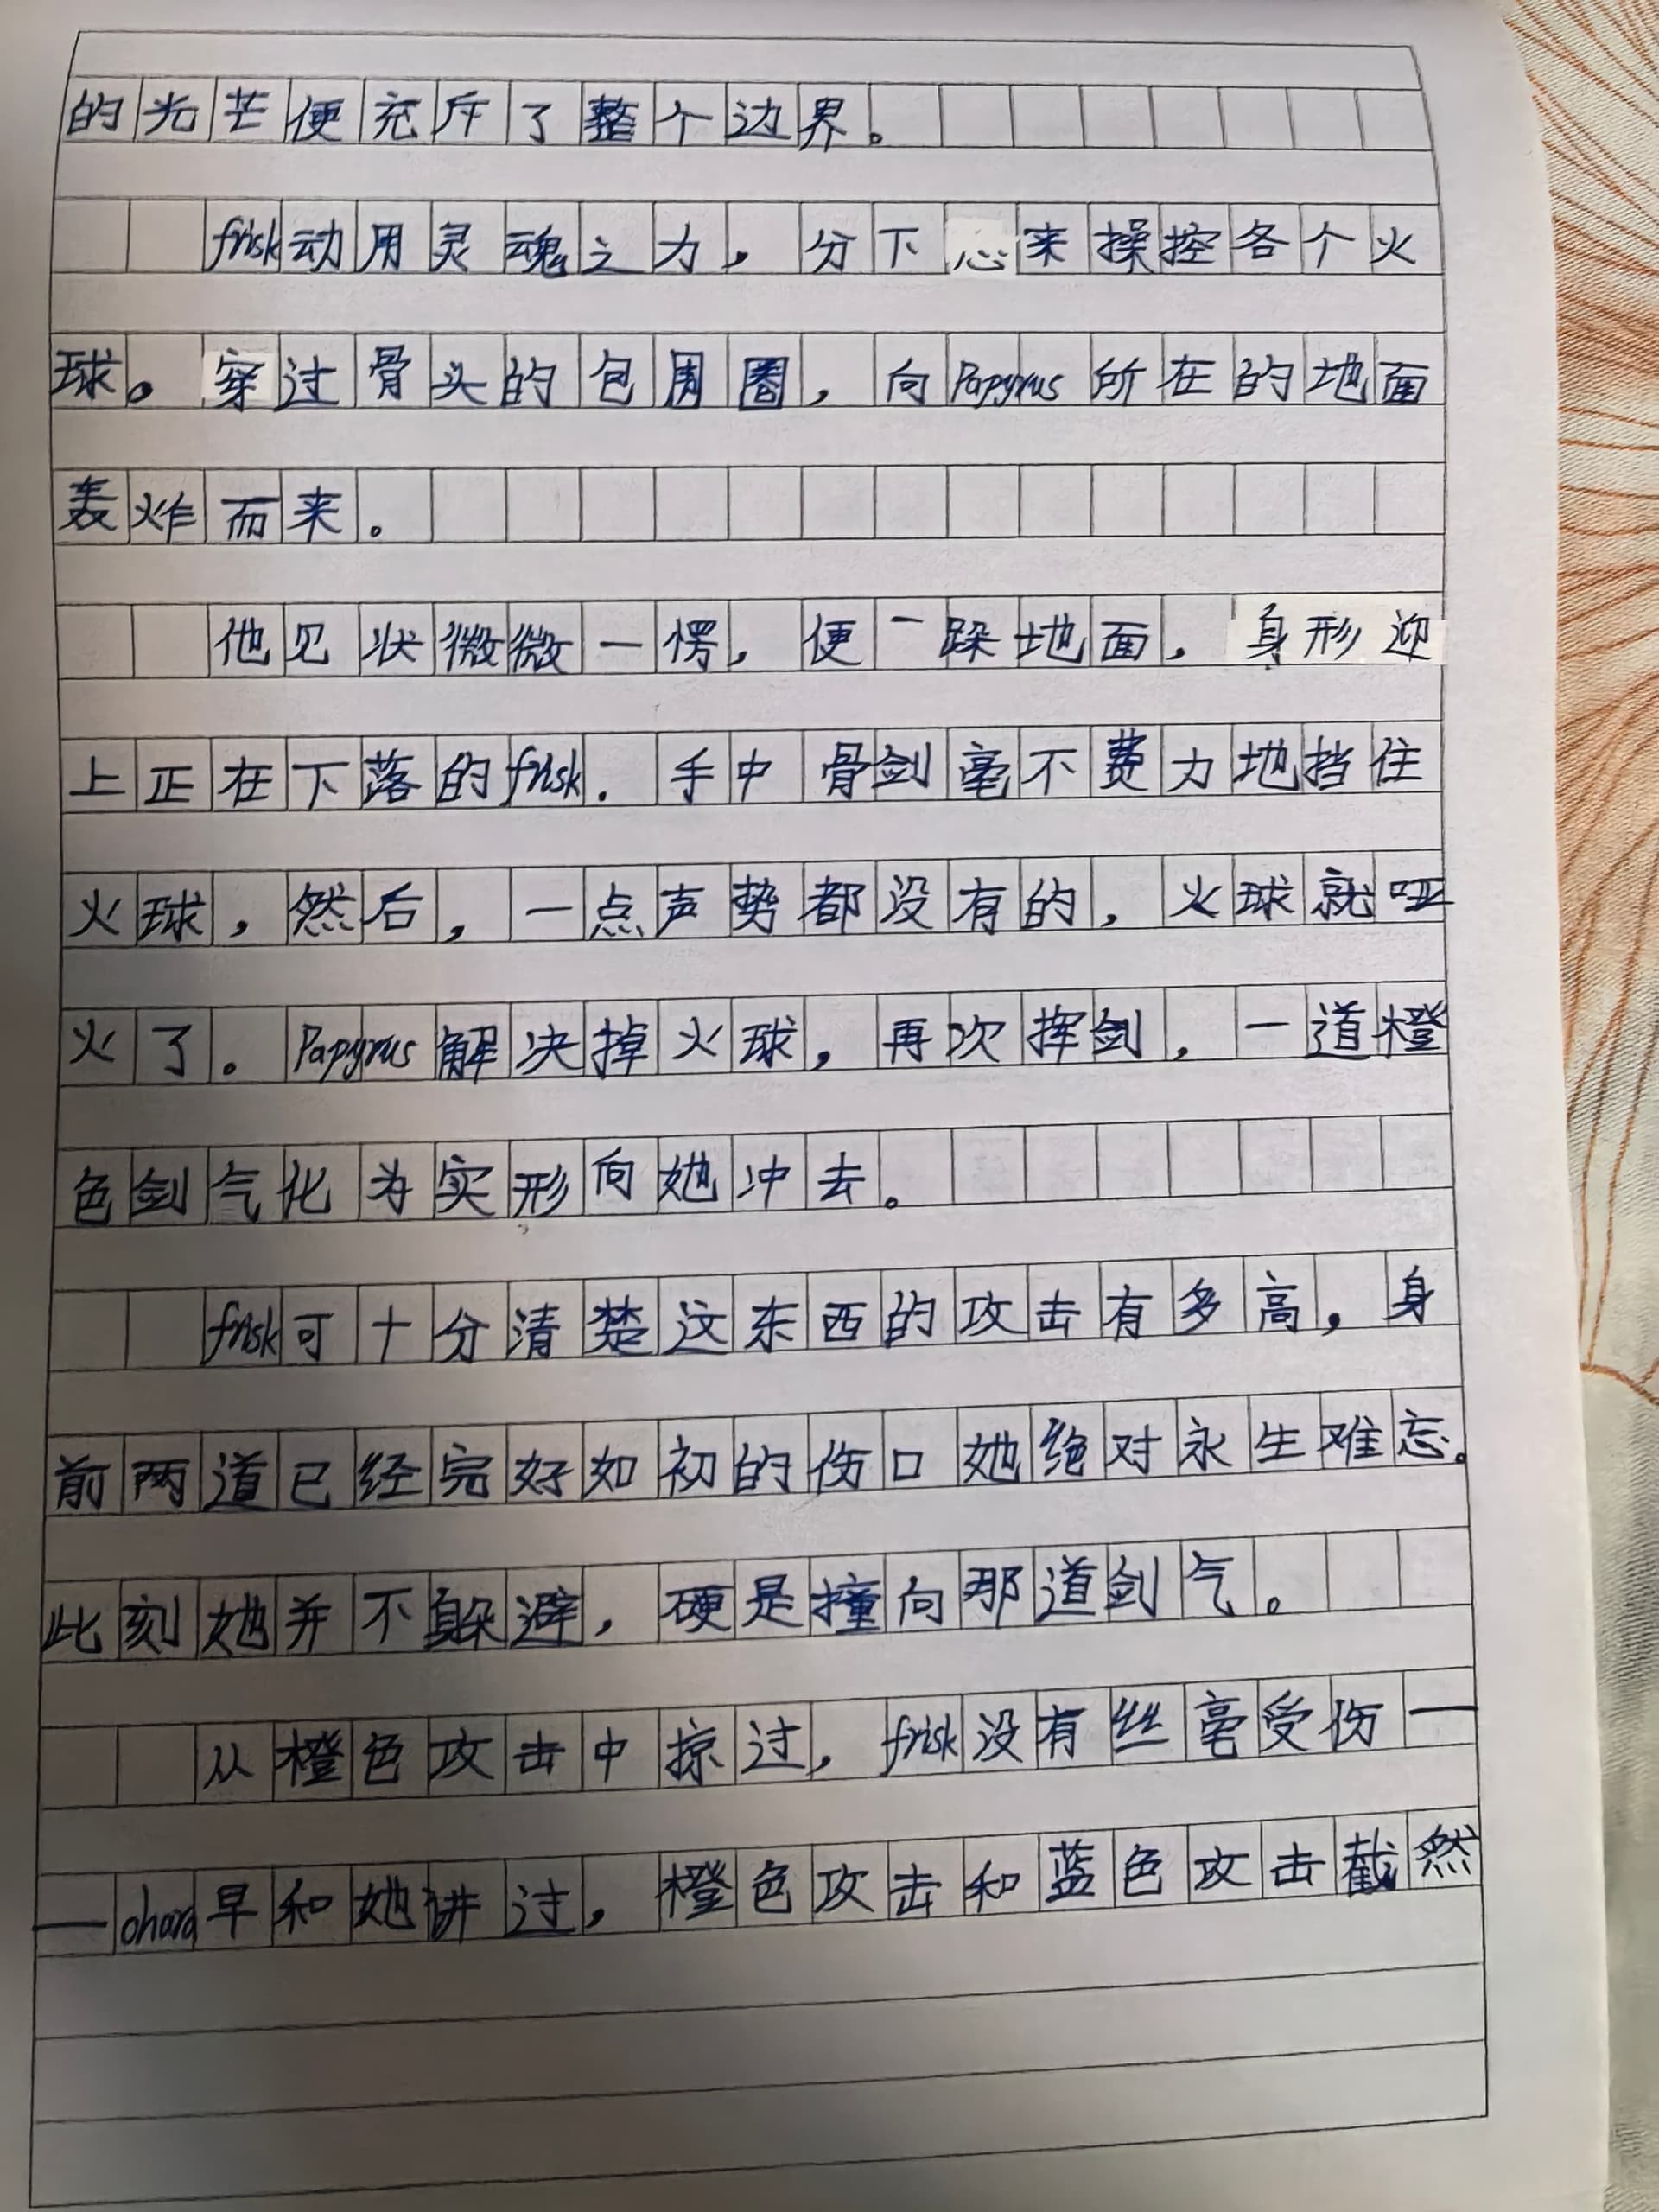 的光芒便充斥了整个边界。
frisk动用灵魂之力，分下心来操控各个火
球。穿过骨头的包围圈，向Papyrus所在的地面
轰炸而来。
他见状微微一愣，便一跺地面，身形迎
上正在下落的frisk.手中骨剑毫不费力地挡住
火球，然后，一点声势都没有的，火球就哑
火了。Papyrus解决掉火球，再次挥剑，一道橙
色剑气化为实形向她冲去。
frisk可十分清楚这东西的攻击有多高，身
前两道已经完好如初的伤口她绝对永生难忘。
此刻她并不躲避，硬是撞向那道剑气。
从橙色攻击中掠过，frisk没有丝毫受伤—
—chara早和她讲过，橙色攻击和蓝色攻击截然